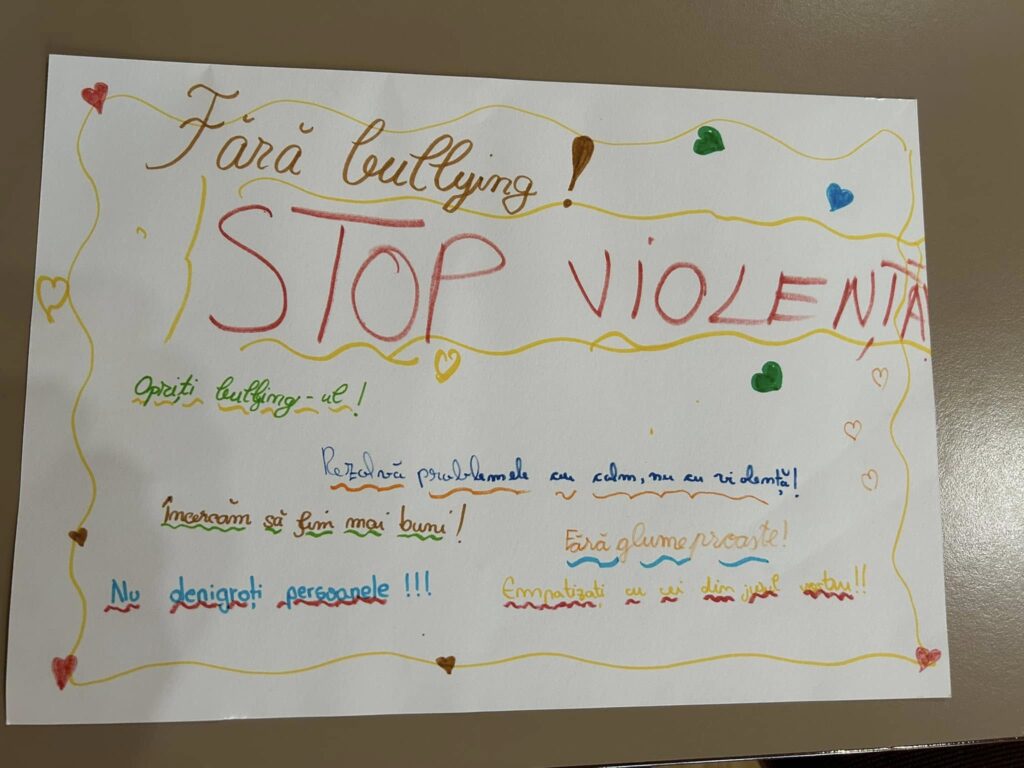 Fără bullying!
STOP VIOLENȚĂ
Opriți bullying-ul!
Rezolvă problemele cu calm, nu cu violență!
Încercăm să fim mai buni!
Fără glume proaste!
Nu denigrați persoanele!!!
Empatizați cu cei din jurul vostru!!